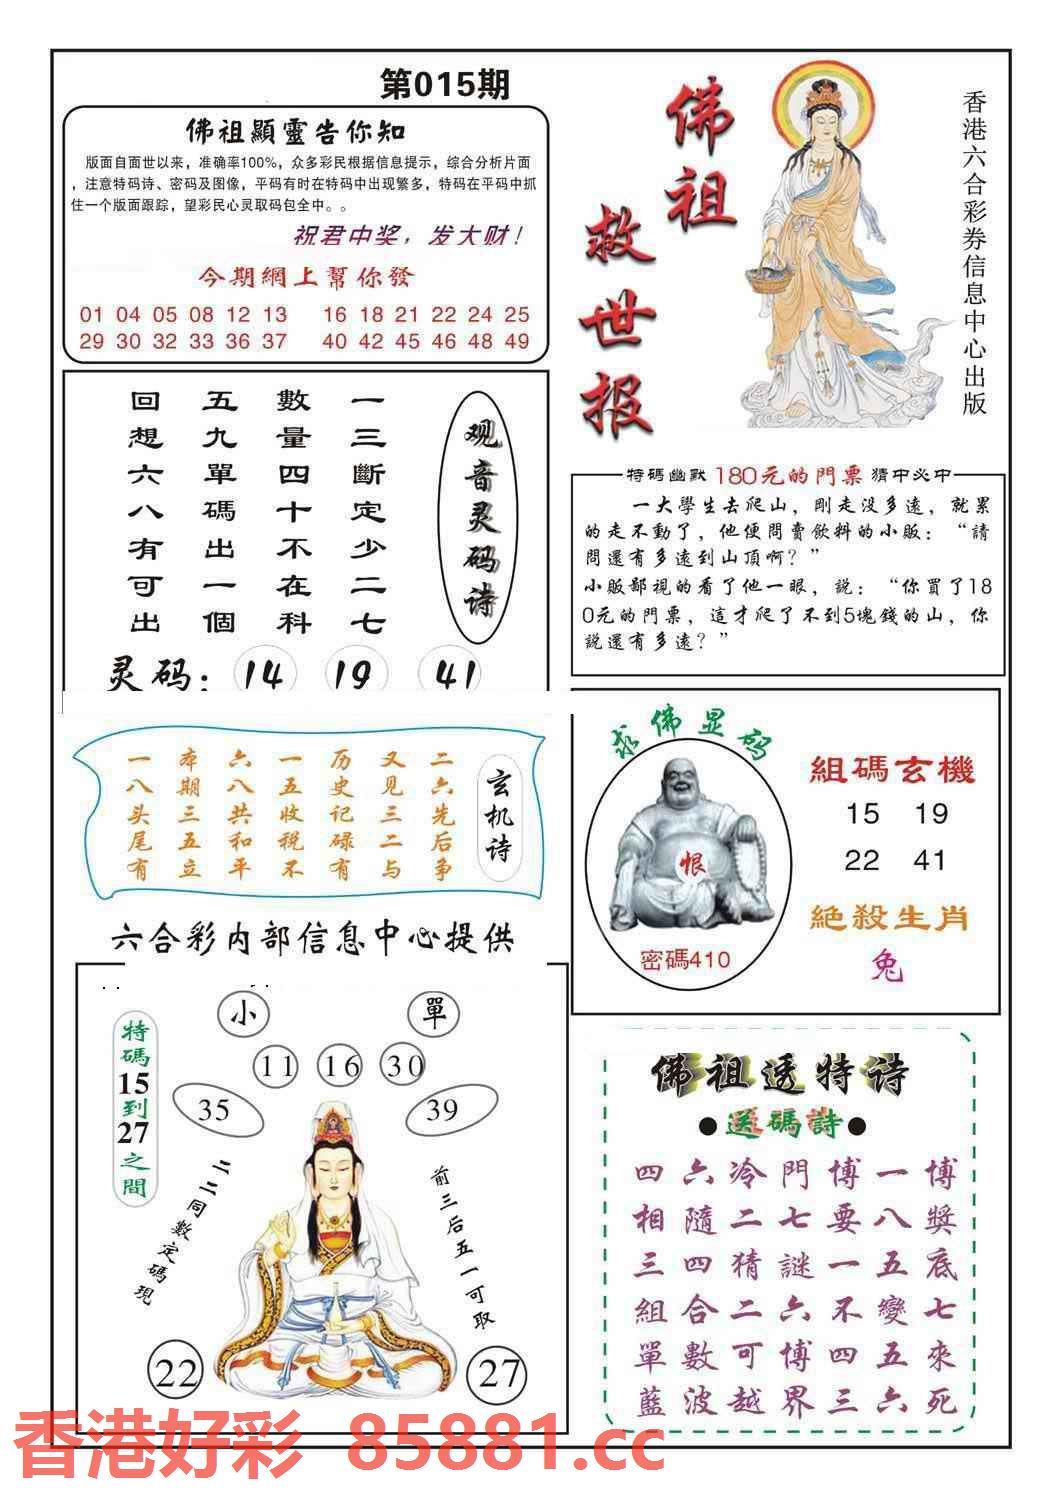 第015期
佛祖顯靈告你知
版面自面世以来，准确率100%，众多彩民根据信息提示，综合分析片面
，注意特码诗、密码及图像，平码有时在特码中出现繁多，特码在平码中抓
住一个版面跟踪，望彩民心灵取码包全中。。
祝君中奖，发大财！
今期網上幫你發
01 04 05 08 12 13 16 18 21 22 24 25
29 30 32 33 36 37 40 42 45 46 48 49
佛祖
救世报
香港六合彩券信息中心出版
观音灵码诗
一三斷定少二七
數量四十不在科
五九單碼出一個
回想六八有可出
灵码：14 19 41
特碼幽默 180元的門票 猜中必中
一大學生去爬山，剛走没多遠，就累
的走不動了，他便問賣飲料的小販：“請
問還有多遠到山頂啊？”
小販鄙視的看了他一眼，説：“你買了18
0元的門票，這才爬了不到5塊錢的山，你
説還有多遠？”
玄机诗
二六先后争
又见三二与
历史记碌有
一五收税不
六八共和平
本期三五立
一八头尾有
求佛显码
恨
密碼410
組碼玄機
15 19
22 41
絶殺生肖
兔
六合彩内部信息中心提供
特碼15到27之間
小
單
11 16 30
35
39
二二同數定碼現
前三后五一可取
22
27
佛祖透特诗
●送碼詩●
四六冷門博一博
相隨二七要八獎
三四猜謎一五底
組合二六不變七
單數可博四五來
藍波越界三六死
香港好彩 85881.cc